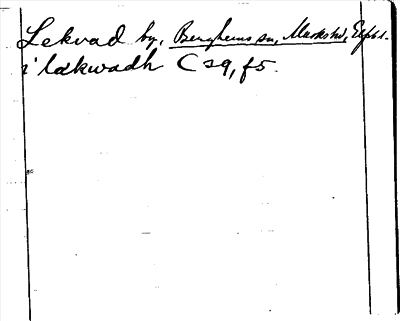 Lekvad by, Berghems sn, Marks hd, Elfsb l.
i lækwadh C 29, f 5.